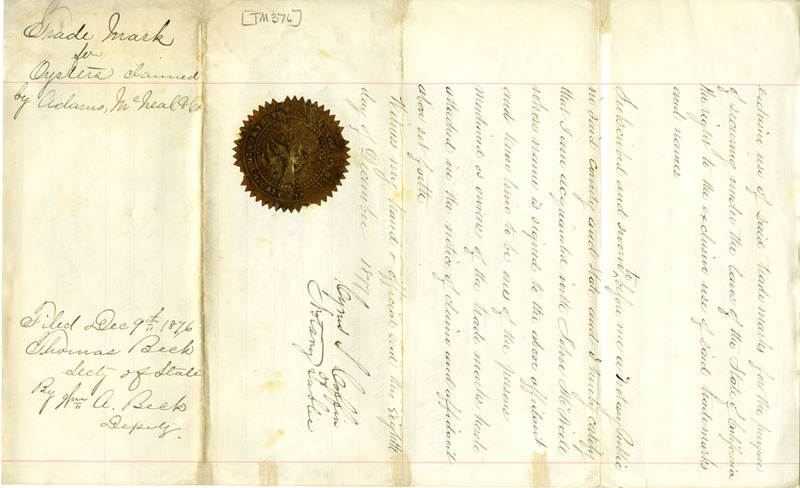 [TM 376]
Trade Mark
for
Oysters claimed
by Adams, McNeal & Co
Filed Dec 9th 1876
Thomas Beck
Secty of State
By Wm A. Beck
Deputy.
exclusive use of said trade marks for the purpose
of securing under the laws of the State of California
the right to the exclusive use of said trademarks
and names
Subscribed and sworn to before me a Notary Public
in said County and State and I hereby certify
that I am acquainted with John
whose name is signed to the above affidavit
and know him to be one of the persons
mentioned as owners of the trade marks
attached in the notice of claim and affidavit
above set forth
Witness my hand & official seal this eighth
day of December 1876
Notary Public